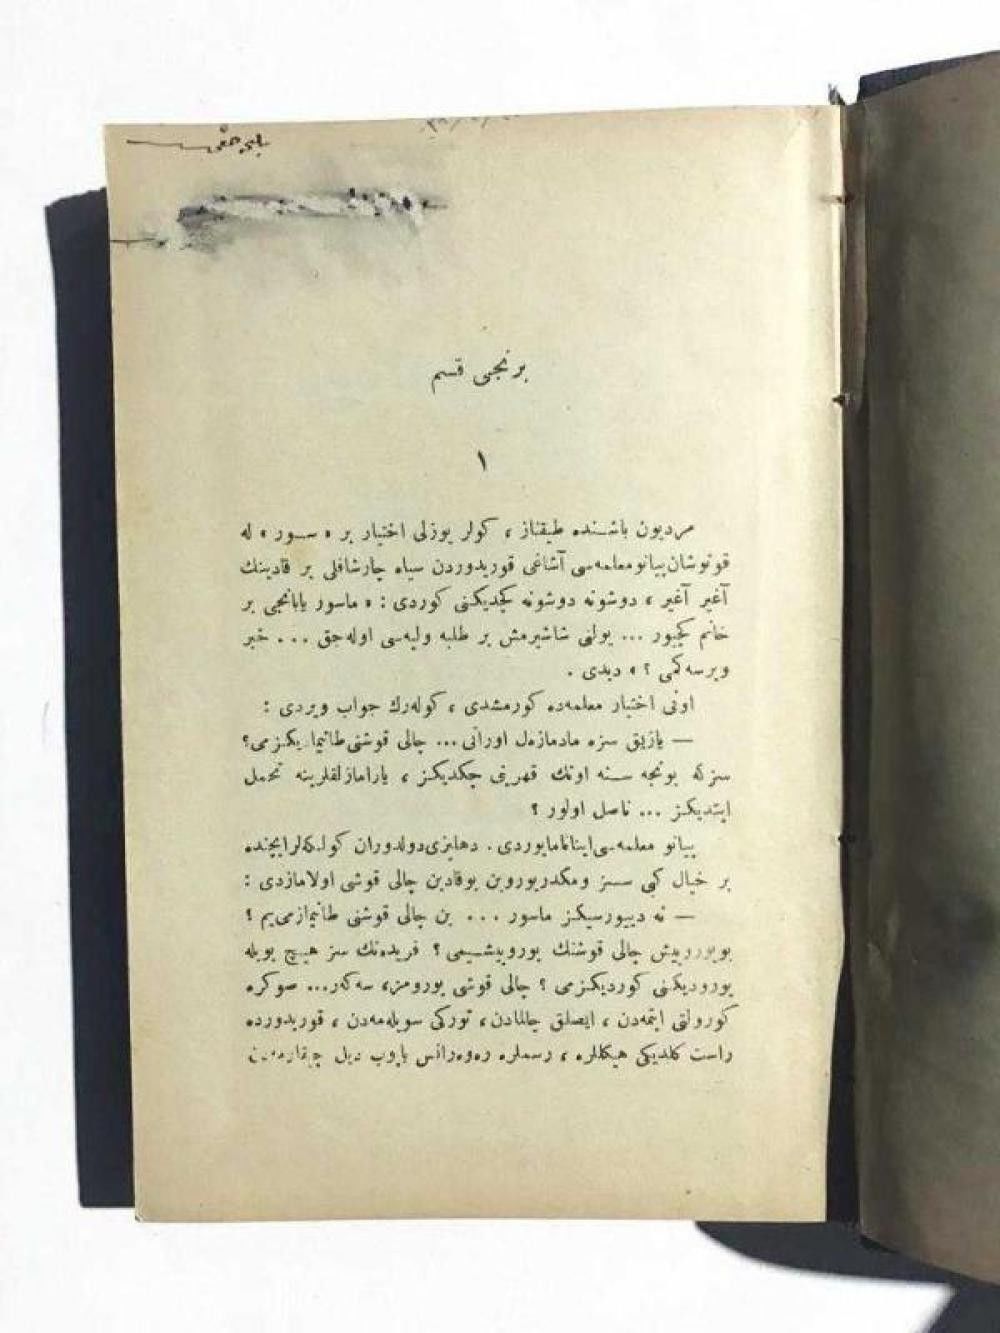 برنجی قسم
١
مردیون باشنده طیقناز ، كولر یوزلی اختیار بر « سور » له
قونوشان پیانو معلمه‌سی آشاغی قوریدوردن سیاه چارشافلی بر قادینك
آغیر آغیر ، دوشونه دوشونه كچدیكنی كوردی : « ماسور یابانجی بر
خانم كچیور ... یولنی شاشیرمش بر طلبه ولیه‌سی اوله‌جق ... خبر
ویرسه‌كمی ؟ » دیدی .
اونی اختیار معلمه‌ده كورمشدی ، كوله‌رك جواب ویردی :
— یازیق سزه مادمازه‌ل اورانی ... چالی قوشنی طانیمادیكزمی؟
سزكه بونجه سنه اونك قهرینی چكدیكز ، یارامازلقلرینه تحمل
ایتدیكز ... ناصل اولور ؟
پیانو معلمه‌سی اینانامایوردی . دهلیزی دولدوران كولكه‌لر ایچنده
بر خیال كبی سسز و مكدر یوروین بو قادین چالی قوشی اولامازدی :
— نه دییورسیكز ماسور ... بن چالی قوشنی طانیمازمی‌یم ؟
بو یورویش چالی قوشنك یورویشیمی ؟ فریده‌نك سز هیچ بویله
یورودیكنی كوردیكزمی ؟ چالی قوشی یورومز، سه‌كه‌ر... صوكره
كورولتی ایتمه‌دن ، ایصلق چالمادن ، توركی سویله‌مه‌دن ، قوریدورده
راست كلدیكی هیكللره ، رسملره ره‌وه‌رانس یاپوب دیل چیقارمه‌دن